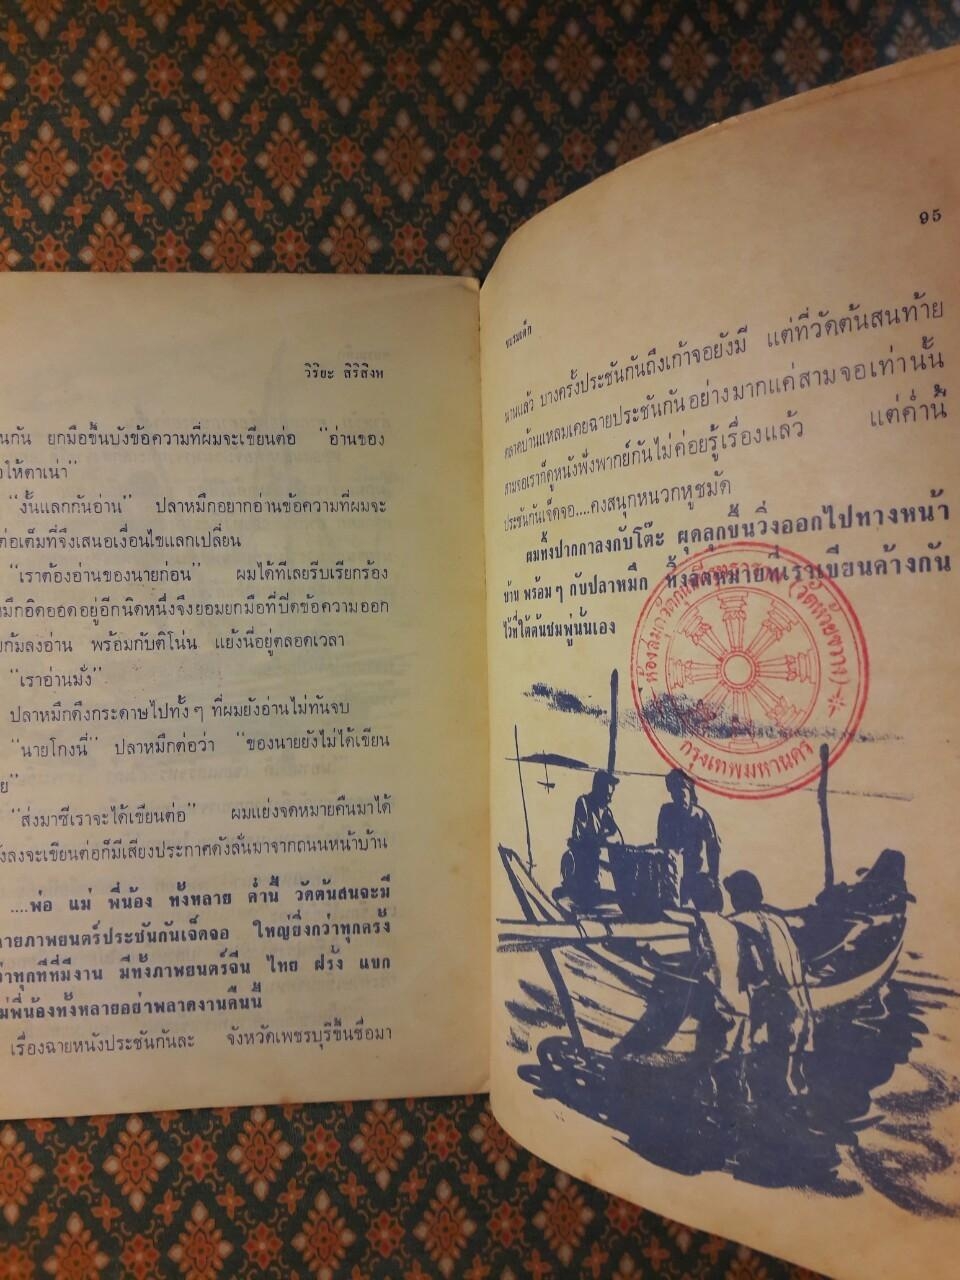 วิริยะ สิริสิงห
นกัน ยกมือขึ้นบังข้อความที่ผมจะเขียนต่อ “อ่านของ
ให้ตาเน่า”
“งั้นแลกกันอ่าน” ปลาหมึกอยากอ่านข้อความที่ผมจะ
ต่อเต็มที่จึงเสนอเงื่อนไขแลกเปลี่ยน
“เราต้องอ่านของนายก่อน” ผมได้ทีเลยรีบเรียกร้อง
หมึกอิดออดอยู่อีกนิดหนึ่งจึงยอมยกมือที่ปิดข้อความออก
ก้มลงอ่าน พร้อมกับติโน่น แย้งนี่อยู่ตลอดเวลา
“เราอ่านมั่ง”
ปลาหมึกดึงกระดาษไปทั้งๆ ที่ผมยังอ่านไม่ทันจบ
“นายโกงนี่” ปลาหมึกต่อว่า “ของนายยังไม่ได้เขียน
ย”
“ส่งมาซีเราจะได้เขียนต่อ” ผมแย่งจดหมายคืนมาได้
ลงจะเขียนต่อก็มีเสียงประกาศดังลั่นมาจากถนนหน้าบ้าน
....พ่อ แม่ พี่น้อง ทั้งหลาย ค่ำนี้ วัดต้นสนจะมี
ายภาพยนตร์ประชันกันเจ็ดจอ ใหญ่ยิ่งกว่าทุกครั้ง
ว่าทุกทีที่มีงาน มีทั้งภาพยนตร์จีน ไทย ฝรั่ง แขก
ม่พี่น้องทั้งหลายอย่าพลาดงานคืนนี้
เรื่องฉายหนังประชันกันละ จังหวัดเพชรบุรีขึ้นชื่อมา
95
ขบวนเด็ก
นานแล้ว บางครั้งประชันกันถึงเก้าจอยังมี แต่ที่วัดต้นสนท้าย
ตลาดบ้านแหลมเคยฉายประชันกันอย่างมากแค่สามจอเท่านั้น
สามจอเราก็ดูหนังฟังพากย์กันไม่ค่อยรู้เรื่องแล้ว แต่ค่ำนี้
ประชันกันเจ็ดจอ....คงสนุกหนวกหูชมัด
ผมทิ้งปากกาลงกับโต๊ะ ผุดลุกขึ้นวิ่งออกไปทางหน้า
บ้าน พร้อมๆ กับปลาหมึก ทิ้งจดหมายที่เราเขียนค้างกัน
ไว้ที่ใต้ต้นชมพู่นั้นเอง
ห้องสมุด (วัดห้วยขวาง)
กรุงเทพมหานคร